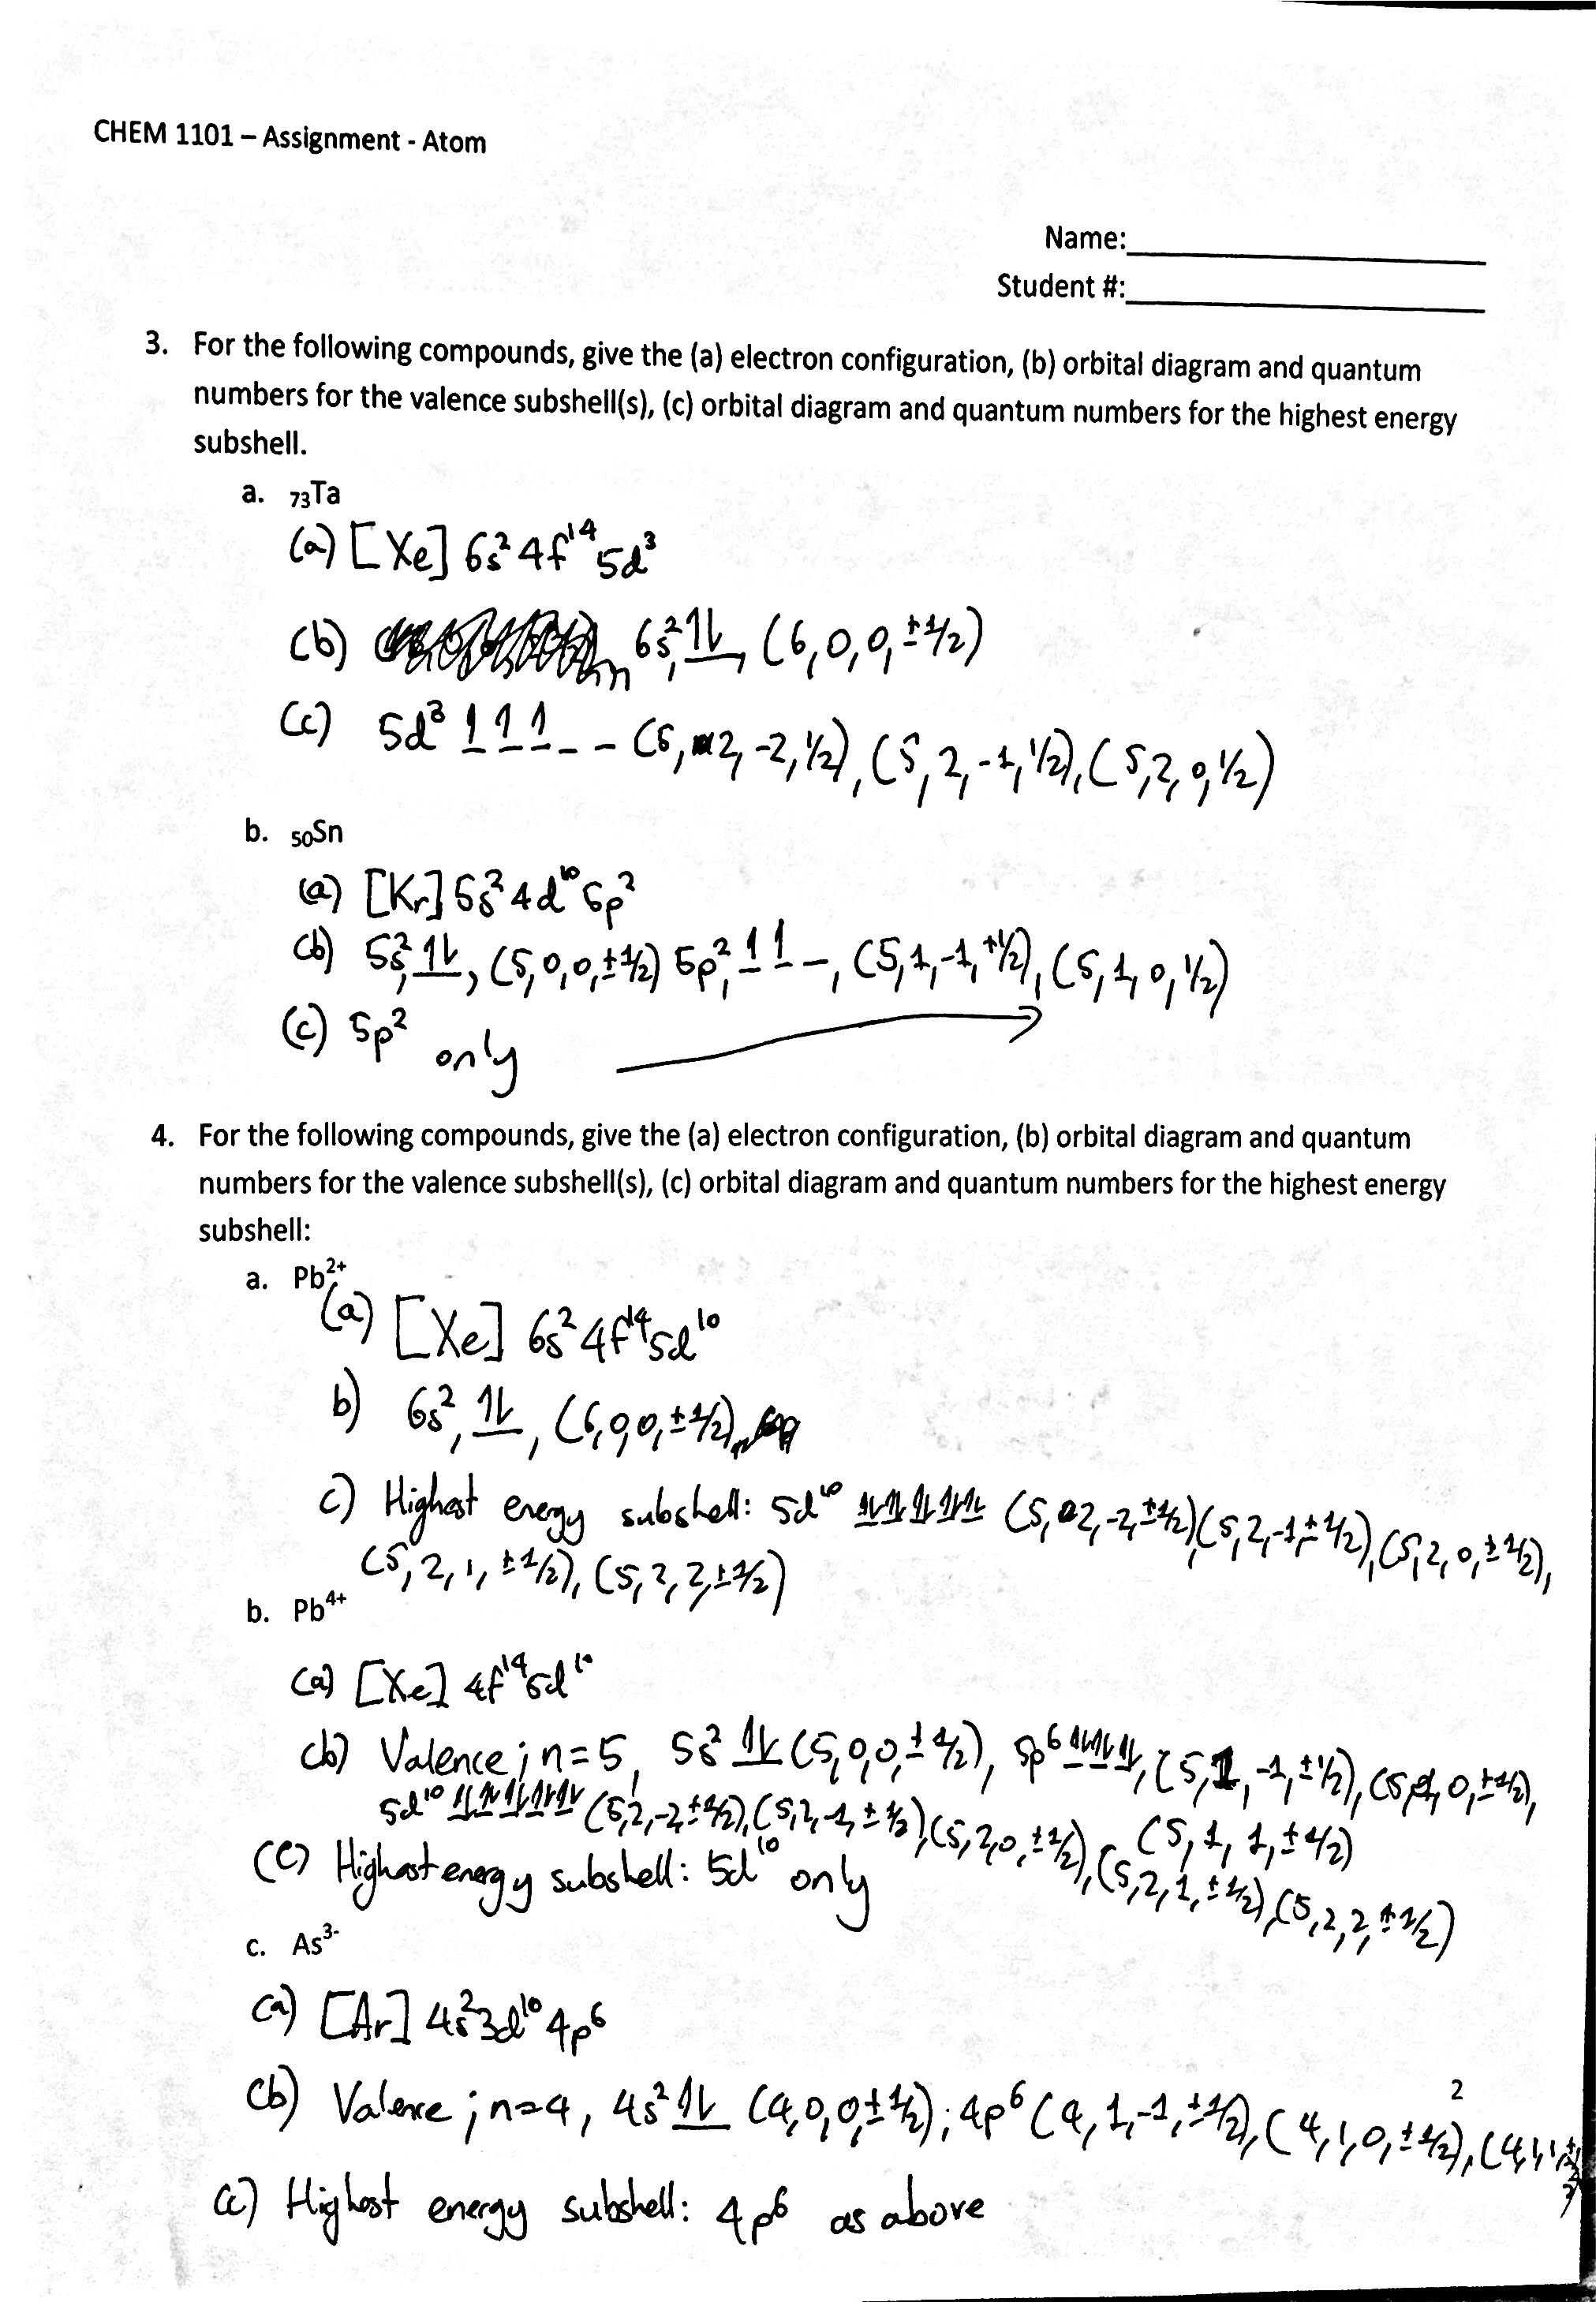 CHEM 1101 – Assignment - Atom
Name:
Student #:
3. For the following compounds, give the (a) electron configuration, (b) orbital diagram and quantum
numbers for the valence subshell(s), (c) orbital diagram and quantum numbers for the highest energy
subshell.
a. ₇₃Ta
(a) [Xe] 6s² 4f¹⁴ 5d³
(b) 6s², ↿⇂, (6,0,0,±1/2)
(c) 5d³ ↿ ↿ ↿ _ _ (5,2,-2,1/2), (5,2,-1,1/2), (5,2,0,1/2)
b. ₅₀Sn
(a) [Kr] 5s² 4d¹⁰ 5p²
(b) 5s², ↿⇂, (5,0,0,±1/2) 5p², ↿ ↿ _, (5,1,-1,+1/2), (5,1,0,1/2)
(c) 5p² only →
4. For the following compounds, give the (a) electron configuration, (b) orbital diagram and quantum
numbers for the valence subshell(s), (c) orbital diagram and quantum numbers for the highest energy
subshell:
a. Pb²⁺
(a) [Xe] 6s² 4f¹⁴ 5d¹⁰
b) 6s², ↿⇂, (6,0,0,±1/2)
c) Highest energy subshell: 5d¹⁰ ↿⇂ ↿⇂ ↿⇂ ↿⇂ ↿⇂ (5,2,-2,±1/2), (5,2,-1,±1/2), (5,2,0,±1/2),
(5,2,1,±1/2), (5,2,2,±1/2)
b. Pb⁴⁺
(a) [Xe] 4f¹⁴ 5d¹⁰
(b) Valence; n=5, 5s² ↿⇂ (5,0,0,±1/2), 5p⁶ ↿⇂ ↿⇂ ↿⇂, (5,1,-1,±1/2), (5,1,0,±1/2),
(5,1,1,±1/2)
5d¹⁰ ↿⇂ ↿⇂ ↿⇂ ↿⇂ ↿⇂ (5,2,-2,±1/2), (5,2,-1,±1/2), (5,2,0,±1/2), (5,2,1,±1/2), (5,2,2,±1/2)
(c) Highest energy subshell: 5d¹⁰ only
c. As³⁻
(a) [Ar] 4s² 3d¹⁰ 4p⁶
2
(b) Valence; n=4, 4s² ↿⇂ (4,0,0,±1/2); 4p⁶ (4,1,-1,±1/2), (4,1,0,±1/2), (4,1,1,±1/2)
(c) Highest energy subshell: 4p⁶ as above